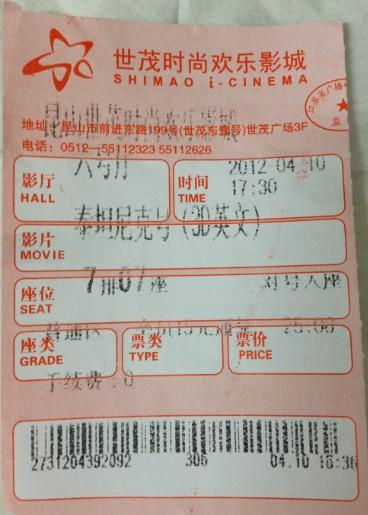 世茂时尚欢乐影城
SHIMAO i-CINEMA
昆山世茂时尚欢乐影城
地址:昆山市前进东路199号(世茂东壹号)世茂广场3F
电话:0512-55112323 55112626
影厅 HALL
六号厅
时间 TIME
2012-04-10
17:30
影片 MOVIE
泰坦尼克号(3D英文)
座位 SEAT
7排07座 对号入座
普通区 25.00
座类 GRADE
票类 TYPE
票价 PRICE
手续费:0
2731204392092 306 04.10 16:36